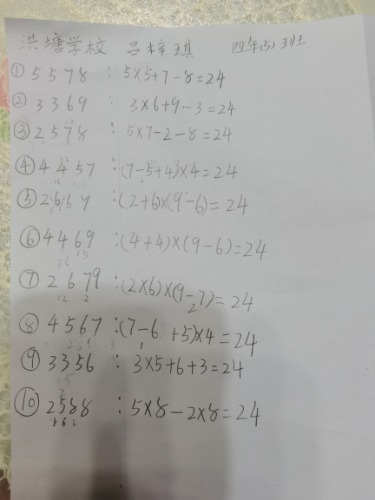 洪塘学校 吕梓琪 四年(5)班
① 5 5 7 8 : 5×5+7-8=24
② 3 3 6 9 3×6+9-3=24
③ 2 5 7 8 : 5×7-2-8=24
④ 4 4 5 7 : (7-5+4)×4=24
⑤ 2 6 6 9 : (2+6)×(9-6)=24
⑥ 4 4 6 9 : (4+4)×(9-6)=24
⑦ 2 6 7 9 : (2×6)×(9-7)=24
⑧ 4 5 6 7 : (7-6+5)×4=24
⑨ 3 3 5 6 : 3×5+6+3=24
⑩ 2 5 8 8 : 5×8-2×8=24